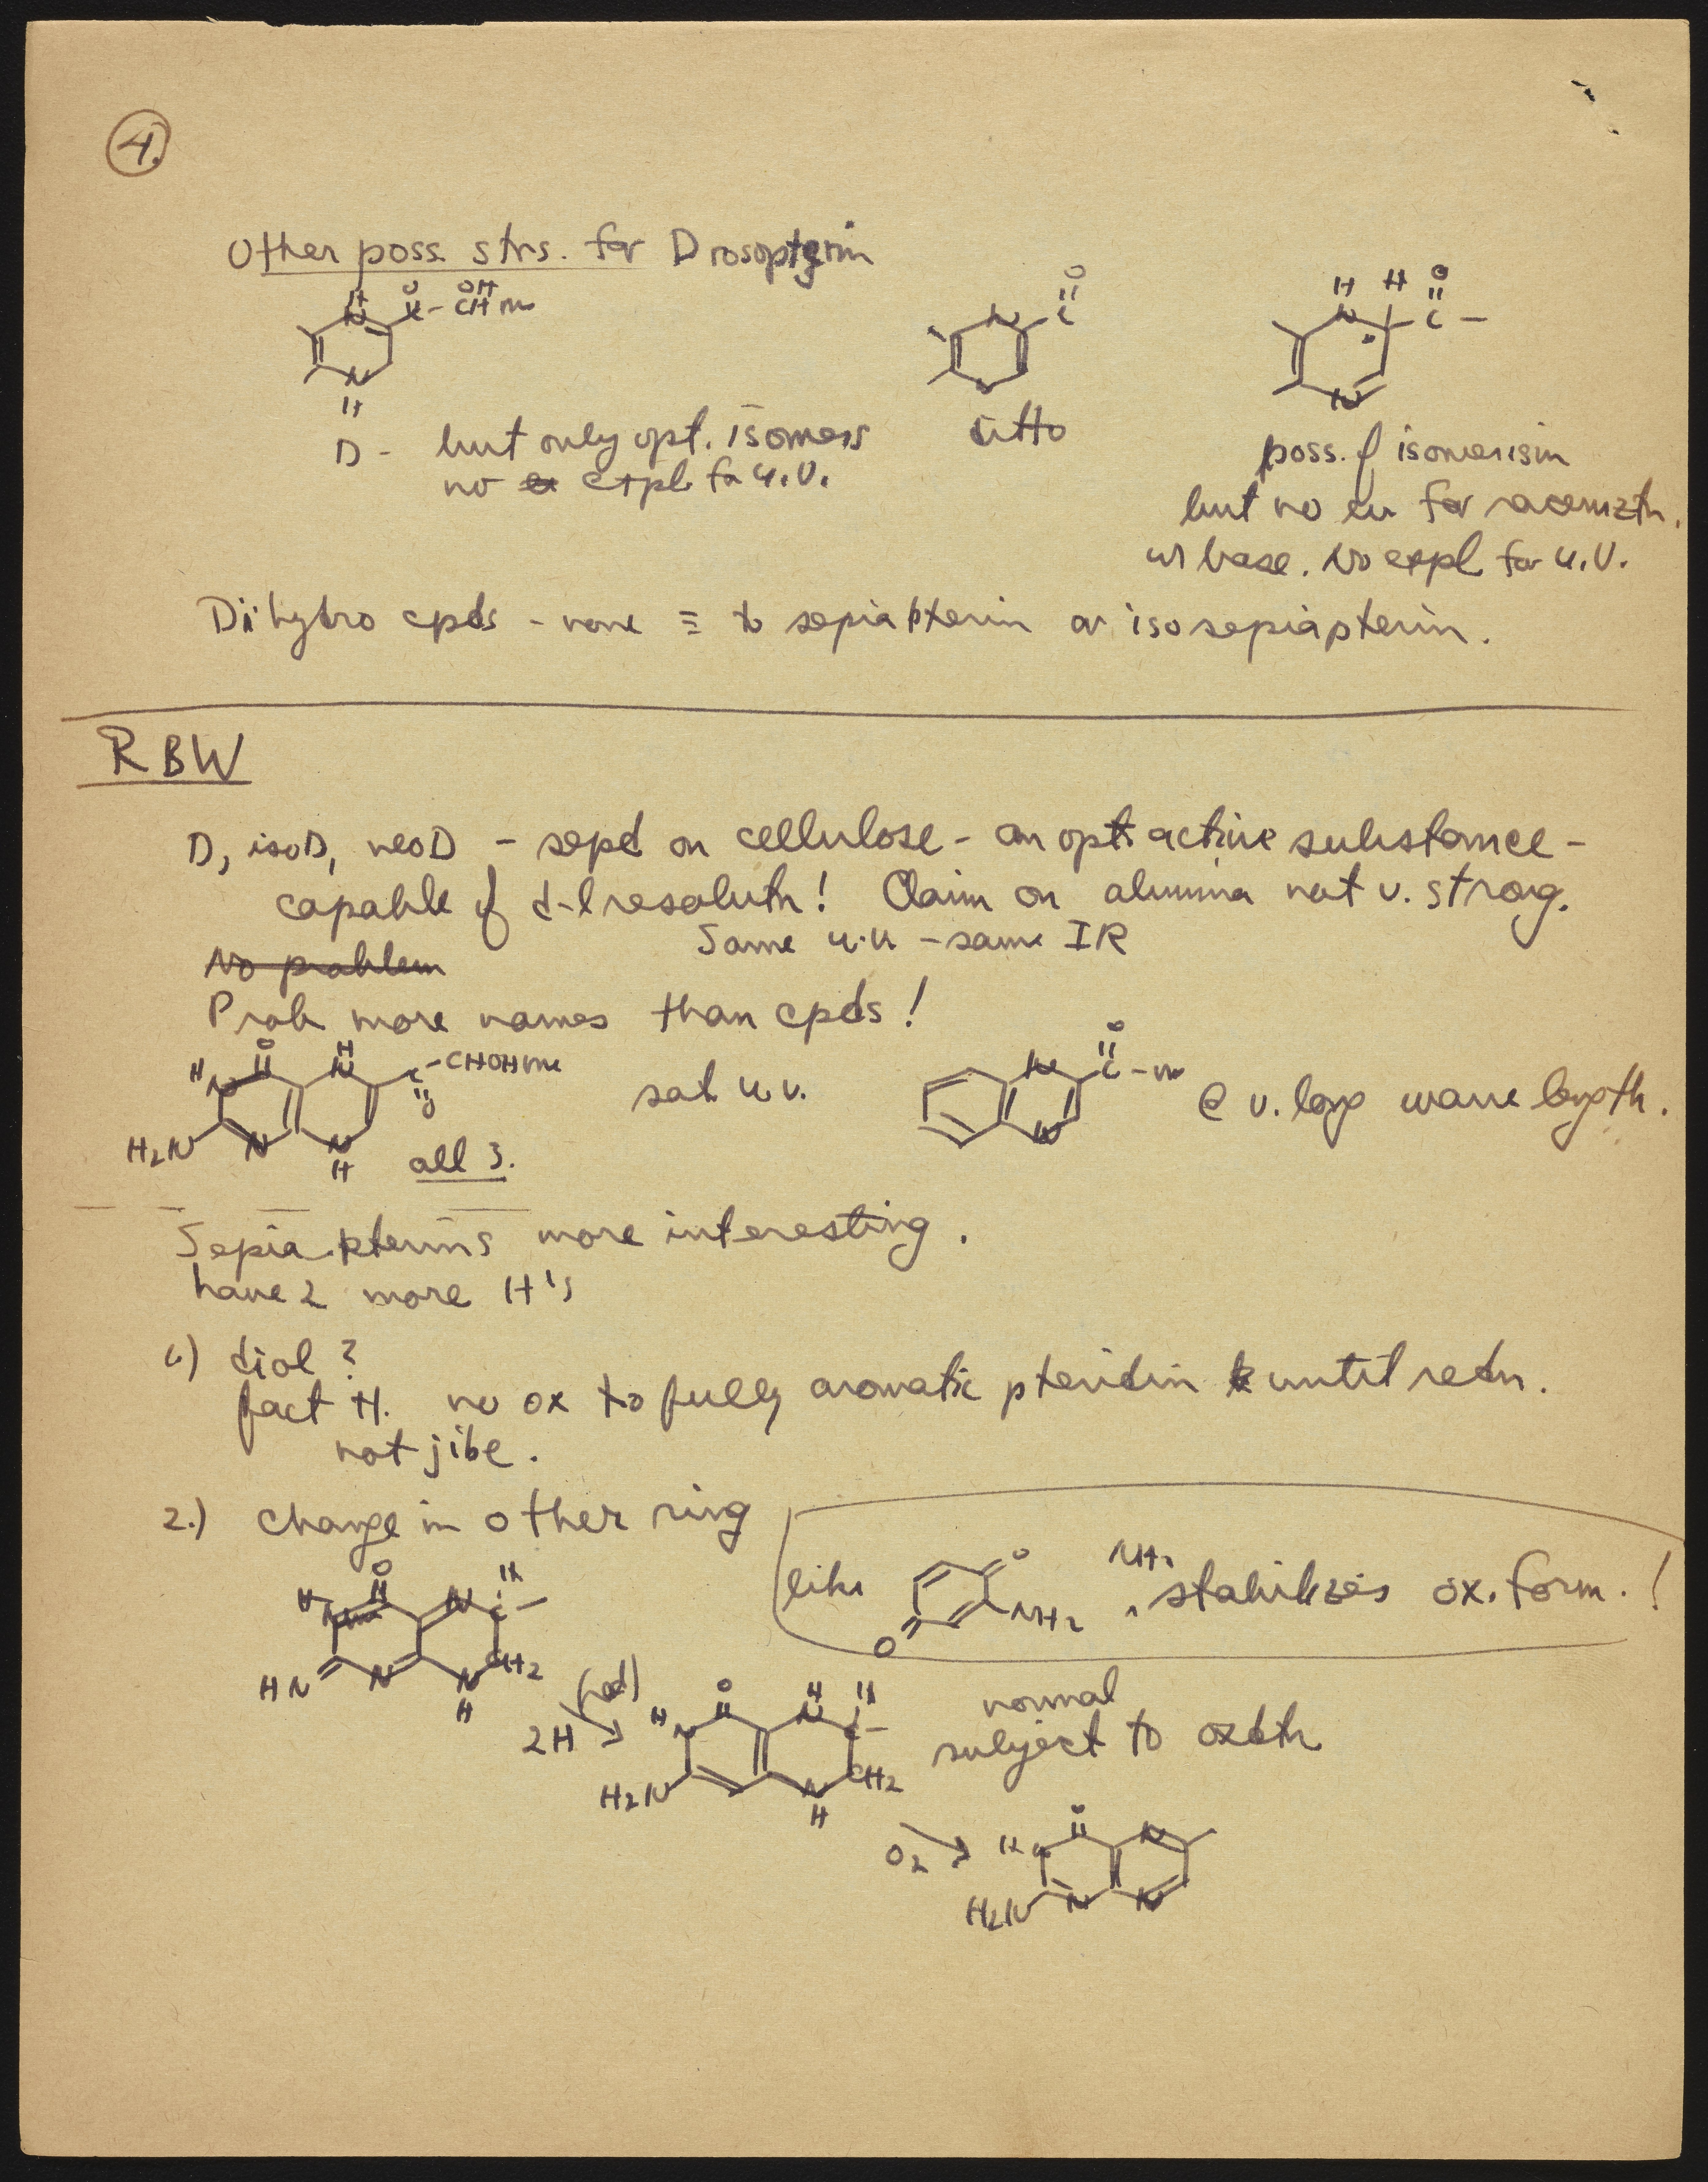 4.
Other poss. strs. for Drosopterin
H O OH
N C - CH me
N
H
O
N C
N
H H O
N C -
N
D - but only opt. isomers
no expl. for U.V.
ditto
poss. of isomerism
but no for racemizth.
w base. No expl for U.V.
Dihydro cpds - none ≡ to sepiapterin or isosepiapterin.
RBW
D, isoD, neoD - sepd on cellulose - an opt. active substance -
capable of d-l resoluth! Claim on alumina not v. strong.
No problem
Same u.v - same IR
Prob more names than cpds!
H N O H N C -CHOHme
O
H2N N N H
all 3.
sat u.v.
N O C - me
N
@ v. long wave length.
Sepiapterins more interesting.
have 2 more H's
1.) diol?
fact H. no ox to fully aromatic pteridin until redn.
not jibe.
2.) change in other ring
like O NH2 O
NH2 stabilizes ox. form. !
O N C -
HN N N CH2
H
(red)
2H →
H N O H N C -
H2N N CH2
H
normal
subject to oxdth
O2 →
H N O N
H2N N N